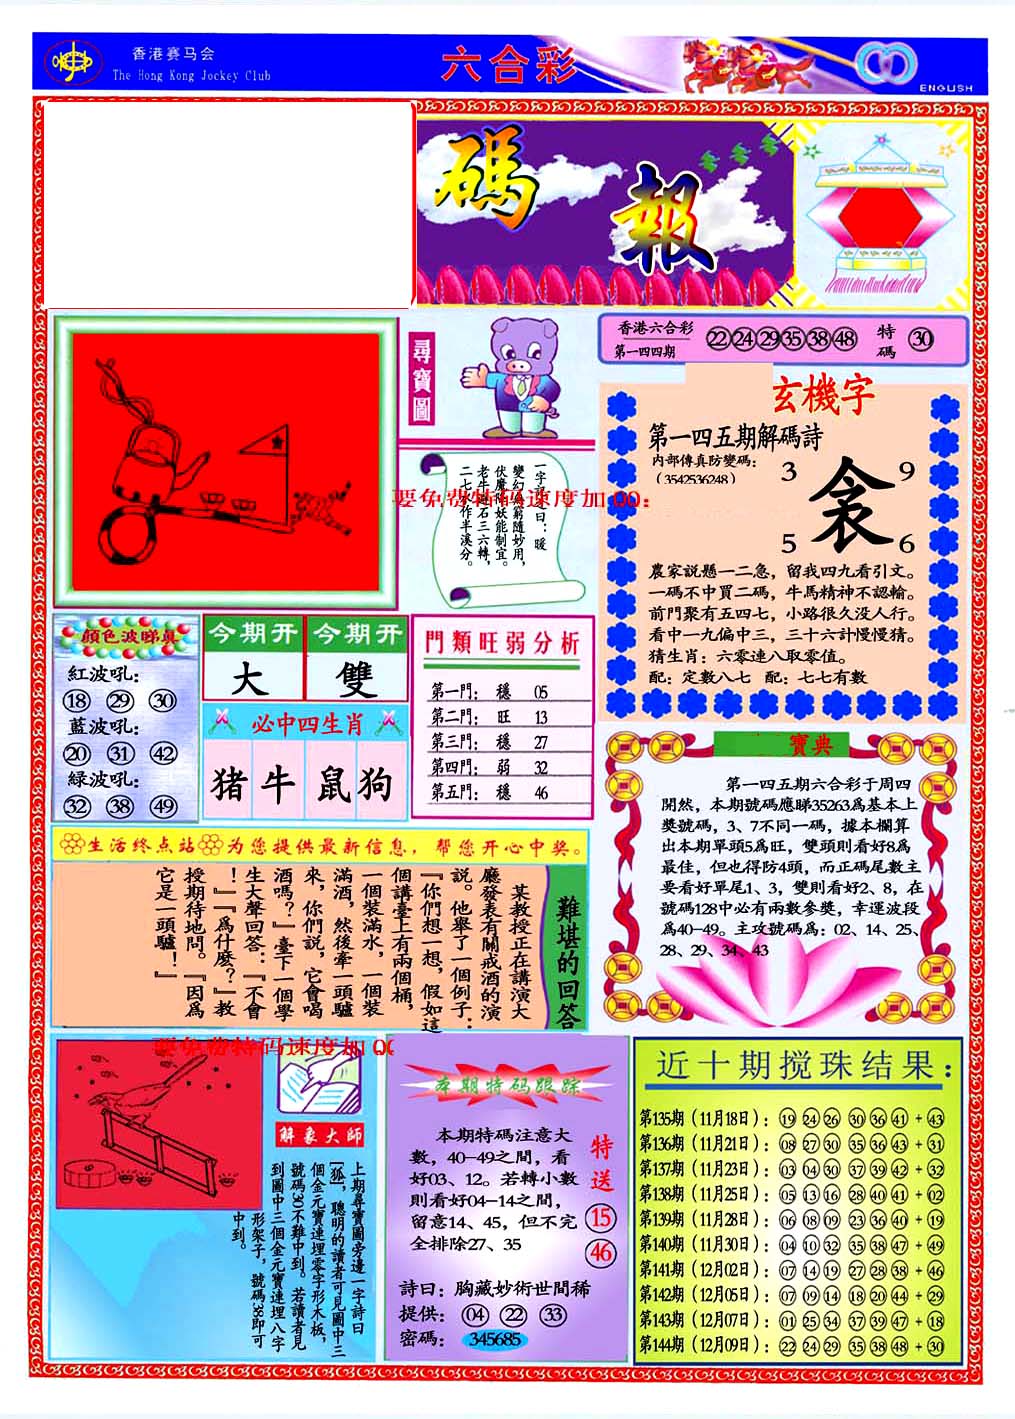 香港赛马会
The Hong Kong Jockey Club
六合彩
ENGLISH
碼報
尋寶圖
香港六合彩
第一四四期
22 24 29 35 38 48
特碼
30
玄機字
第一四五期解碼詩
内部傳真防變碼：
（3542536248）
3 9
5 6
農家説懸一二急，留我四九看引文。
一碼不中買二碼，牛馬精神不認輸。
前門聚有五四七，小路很久没人行。
看中一九偏中三，三十六計慢慢猜。
猜生肖：六零連八取零值。
配：定數八七　配：七七有數
老牛
三六轉，
二七水作半溪分。
要免费特码速度加QQ：
顔色波睇真
紅波吼：
18 29 30
藍波吼：
20 31 42
緑波吼：
32 38 49
今期开 今期开
大 雙
必中四生肖
猪 牛 鼠 狗
門類旺弱分析
第一門： 穩 05
第二門： 旺 13
第三門： 穩 27
第四門： 弱 32
第五門： 穩 46
寶典
第一四五期六合彩于周四
開然，本期號碼應睇35263爲基本上
獎號碼，3、7不同一碼，據本欄算
出本期單頭5爲旺，雙頭則看好8爲
最佳，但也得防4頭，而正碼尾數主
要看好單尾1、3，雙則看好2、8，在
號碼128中必有兩數參獎，幸運波段
爲40-49。主攻號碼爲：02、14、25、
28、29、34、43
生活终点站 为您提供最新信息，帮您开心中奖。
難堪的回答
某教授正在講演大
廳發表有關戒酒的演
説。他舉了一個例子：
『你們想一想，假如這
個講臺上有兩個桶，
一個裝滿水，一個裝
滿酒，然後牽一頭驢
來，你們説，它會喝
酒嗎？』臺下一個學
生大聲回答：『不會
！』『爲什麽？』教
授期待地問。『因爲
它是一頭驢！』
要免费特码速度加QQ
解象大師
上期尋寶圖旁邊一字詩曰
［狐］，聰明的讀者可見圖中三
個金元寶連埋零字形木板，
號碼30不難中到。若讀者見
到圖中三個金元寶連埋八字
形架子，號碼38即可
中到。
本期特码跟踪
本期特碼注意大
數，40-49之間，看
好03、12。若轉小數
則看好04-14之間，
留意14、45，但不完
全排除27、35
特送
15
46
詩曰：胸藏妙術世間稀
提供： 04 22 33
密碼： 345685
近十期搅珠结果：
第135期（11月18日）：19 24 26 30 36 41 + 43
第136期（11月21日）：08 27 30 35 36 43 + 31
第137期（11月23日）：03 04 30 37 39 42 + 32
第138期（11月25日）：05 13 16 28 40 41 + 02
第139期（11月28日）：06 08 09 23 36 40 + 19
第140期（11月30日）：04 10 32 35 38 47 + 49
第141期（12月02日）：07 14 19 27 28 38 + 46
第142期（12月05日）：07 09 14 18 20 44 + 29
第143期（12月07日）：01 25 34 37 39 47 + 18
第144期（12月09日）：22 24 29 35 38 48 + 30